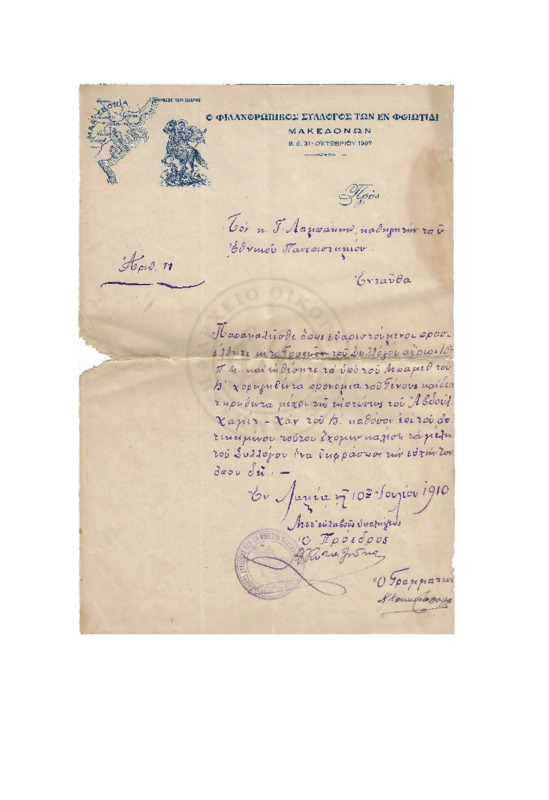 ΜΑΚΕΔΟΝΙΑ
Ο ΦΙΛΑΝΘΡΩΠΙΚΟΣ ΣΥΛΛΟΓΟΣ ΤΩΝ ΕΝ ΦΘΙΩΤΙΔΙ
ΜΑΚΕΔΟΝΩΝ
Β. Δ. 31 - ΟΚΤΩΒΡΙΟΥ 1907
Πρὸς
Τὸν κ. Γ. Λαμπάκην, καθηγητὴν τοῦ
Ἐθνικοῦ Πανεπιστημίου
Ἀριθ. 11
Ἐνταῦθα
Παρακαλεῖσθε ὅπως εὐαριστούμενοι προσ-
έλθητε εἰς τὸ Γραφεῖον τοῦ Συλλόγου αὔριον 10ην
Π.Μ. καὶ ἐκθέσητε τὰ ὑπὸ τοῦ Μωάμεθ τοῦ
Β' χορηγηθέντα προνόμια τοῦ Γένους καὶ δια
τηρηθέντα μέχρι τῆς ἐκπτώσεως τοῦ Ἀβδοὺλ
Χαμὶτ - Χὰν τοῦ Β. καθόσον ἐπὶ τοῦ ἀν-
τικειμένου τούτου ἔχομεν καλέσει τὰ μέλη
τοῦ Συλλόγου ἵνα ἐκφράσωσι τὴν εὐχήν των
ὅπου δεῖ. —
Ἐν Λαμίᾳ τῇ 10ῃ Ἰουλίου 1910
Μετ' εὐλαβοῦς ὑπολήψεως
Ὁ Πρόεδρος
Ὁ Γραμματεὺς